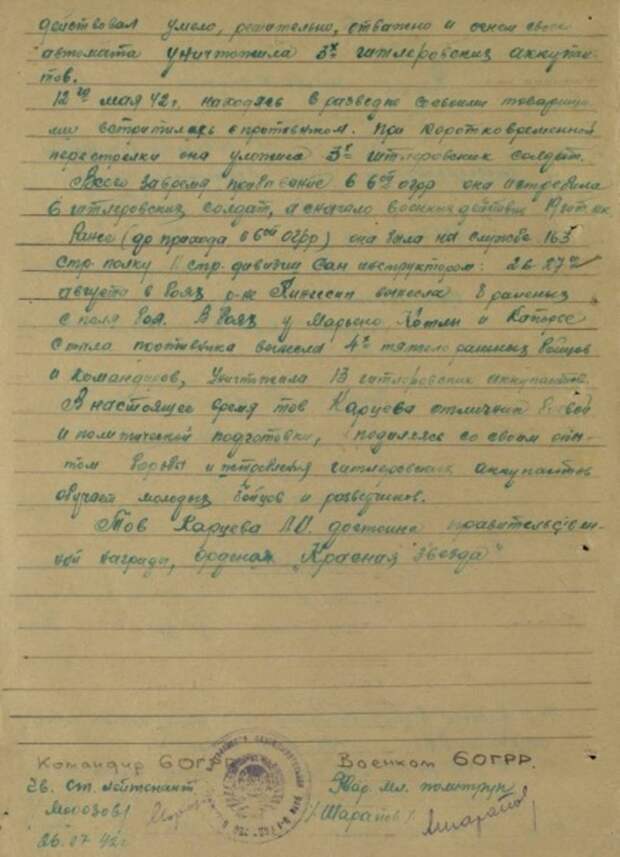 действовал умело, решительно, отважно и огнем своего
автомата уничтожила 3х гитлеровских аккупан-
тов.
12го мая 42г. находясь в разведке со своими товарища-
ми встретились с противником. При коротковременной
перестрелки она уложила 3х гитлеровских солдат.
Всего за время пребывание в 6ой огрр она истребила
6 гитлеровских солдат, а сначало военных действий
Ранее (до прихода в 6ой ОГРР) она была на службе 163
стр. полку 11 стр. дивизии Сан инструктором: 26-27го
августа в боях р-не вынесла 8 раненых
с поля боя. В боях у Марьено, Котлы и Капорье
с тыла поотивника вынесла 4х тяжело раненых бойцов
и командиров, уничтожила 13 гитлеровских аккупантов.
В настоящее время тов Карцева отличник боевой
и политической подготовки, поделяясь со своим опы-
том борьбы и гитлеровских аккупантов
обучает молодых бойцов и разведчиков.
Тов Карцева достойна правительствен-
ной награды, ордена "Красная звезда"
Командир 6ОГРР. Военком 6ОГРР.
Гв. ст. лейтенант Гвар. мл. политрук
Морозов / Шарапов /
26.07.42г.